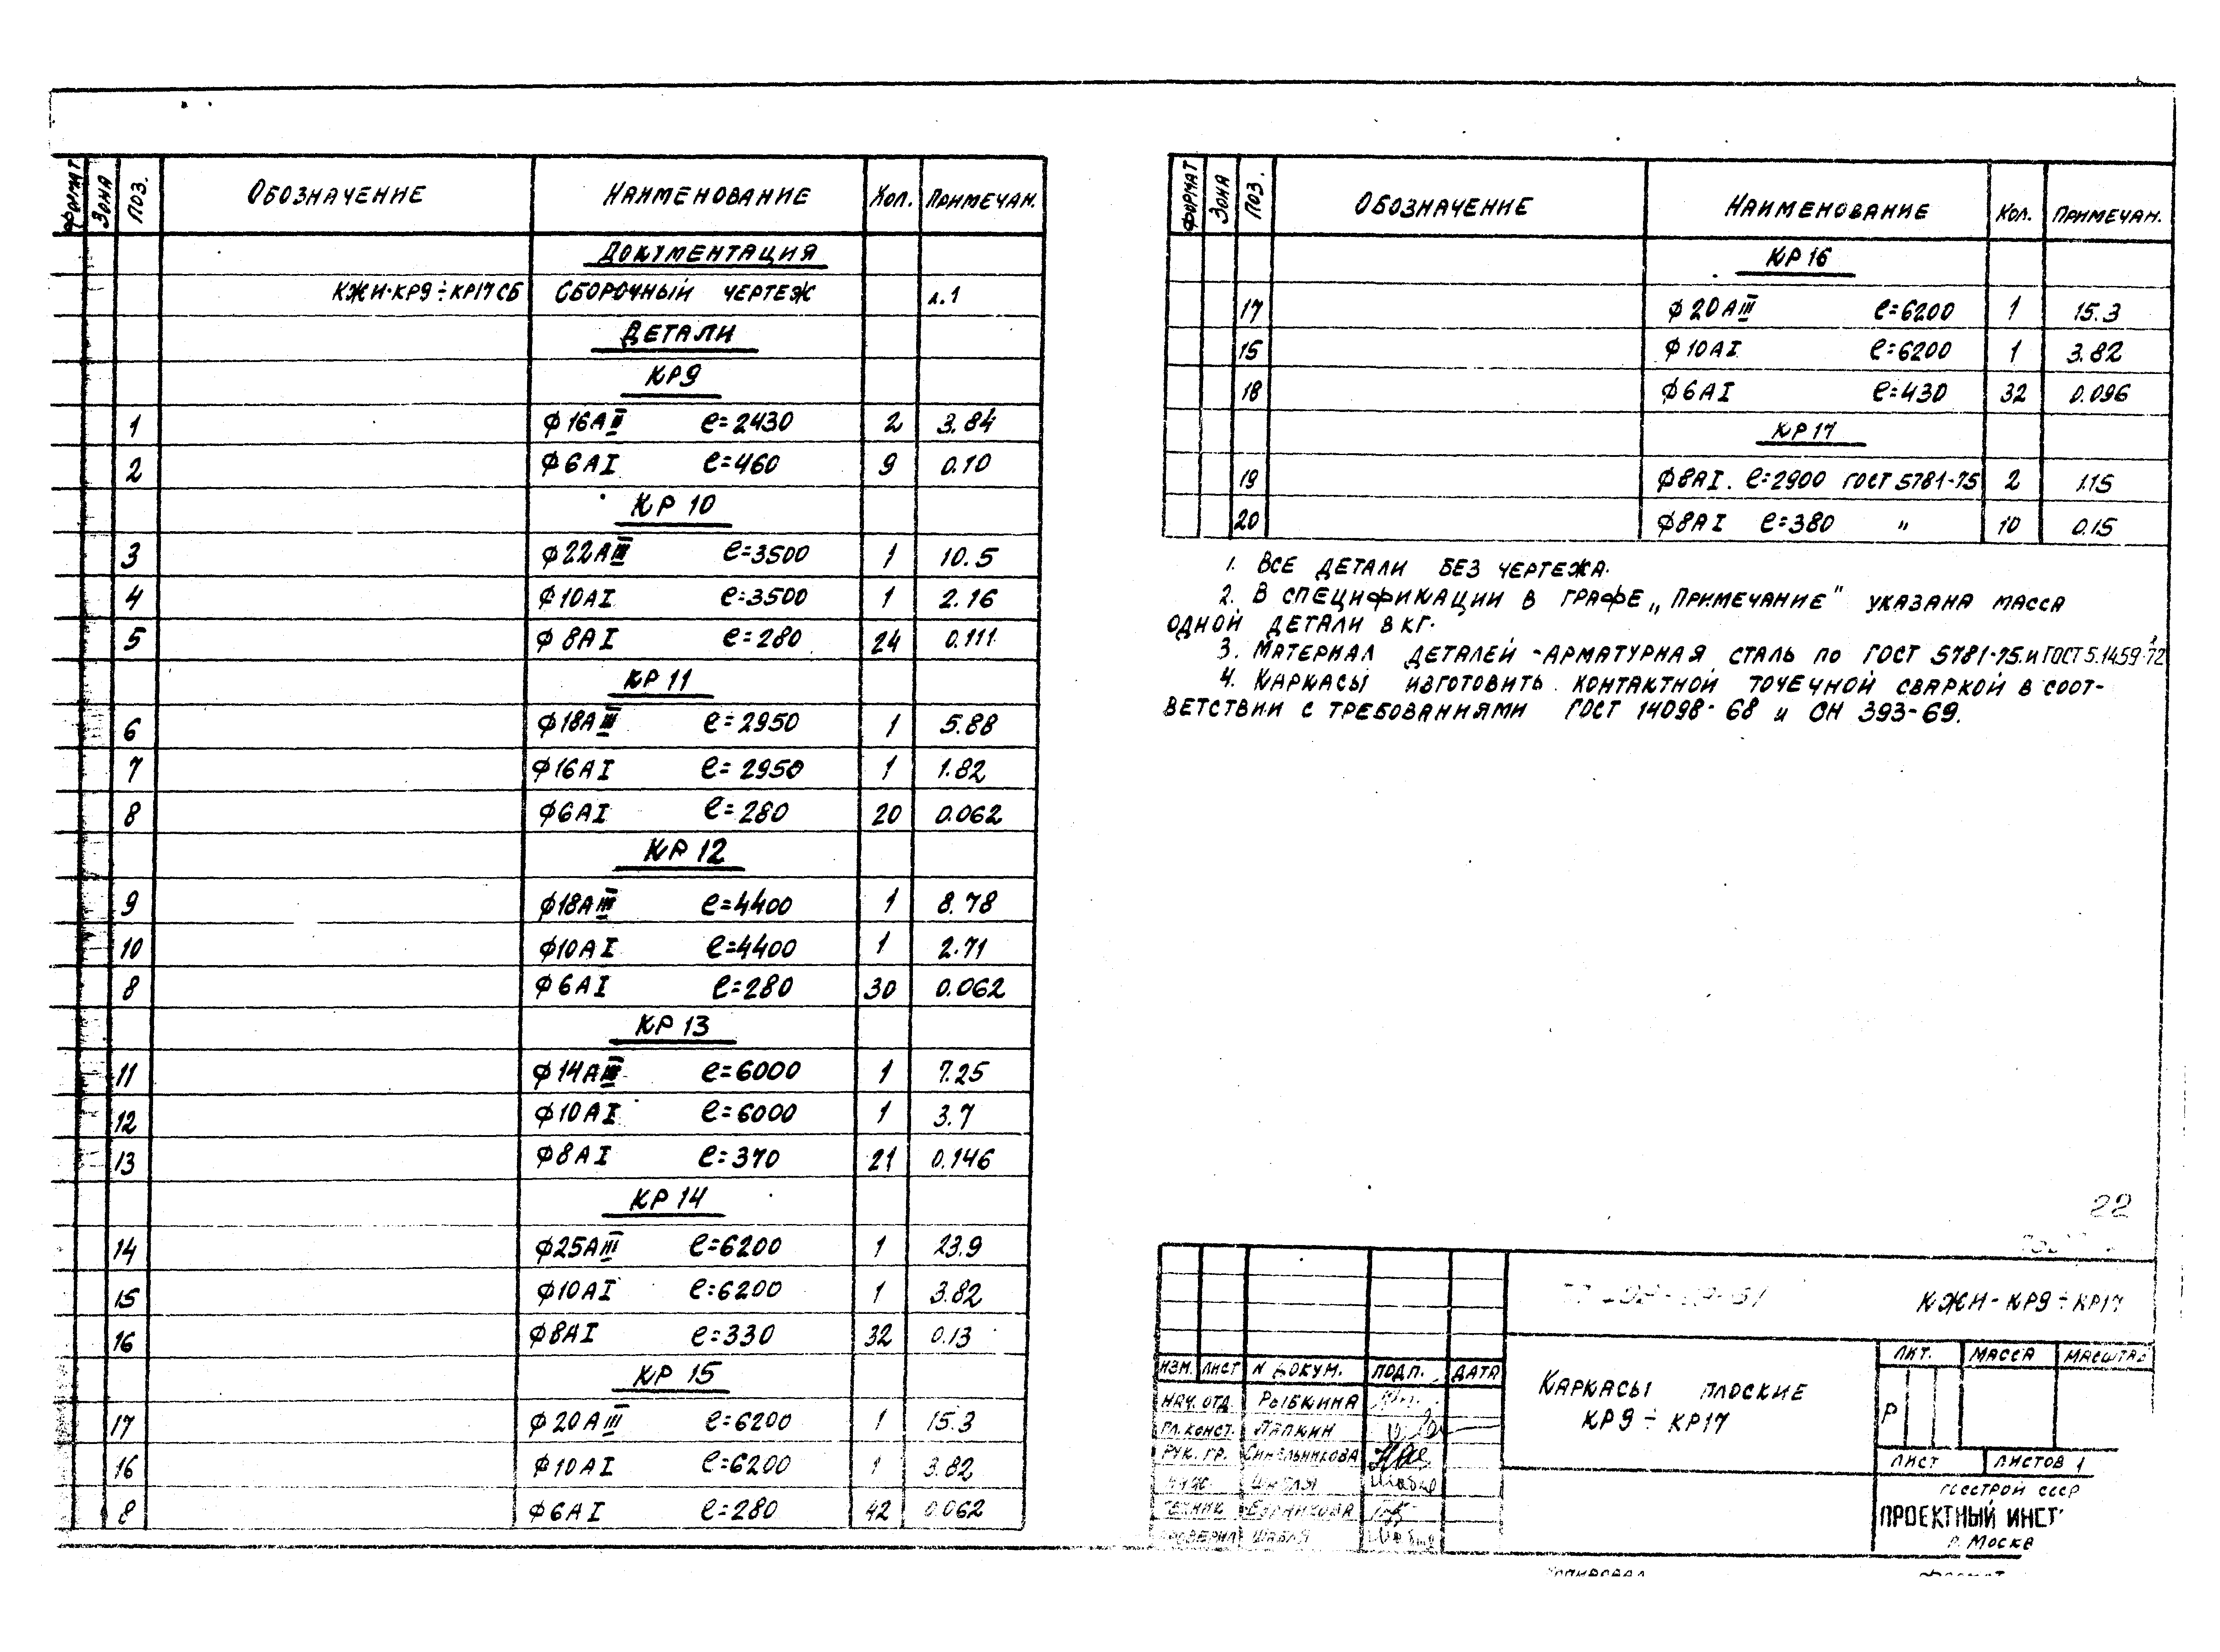 ФОРМАТ ЗОНА ПОЗ. ОБОЗНАЧЕНИЕ НАИМЕНОВАНИЕ КОЛ. ПРИМЕЧАН.
ДОКУМЕНТАЦИЯ
КЖИ-КР9÷КР17СБ СБОРОЧНЫЙ ЧЕРТЕЖ л.1
ДЕТАЛИ
КР9
1 ф16АII ℓ=2430 2 3.84
2 ф6АI ℓ=460 9 0.10
КР 10
3 ф22АIII ℓ=3500 1 10.5
4 ф10АI ℓ=3500 1 2.16
5 ф8АI ℓ=280 24 0.111
КР 11
6 ф18АIII ℓ=2950 1 5.88
7 ф16АI ℓ=2950 1 1.82
8 ф6АI ℓ=280 20 0.062
КР 12
9 ф18АIII ℓ=4400 1 8.78
10 ф10АI ℓ=4400 1 2.71
8 ф6АI ℓ=280 30 0.062
КР 13
11 ф14АIII ℓ=6000 1 7.25
12 ф10АI ℓ=6000 1 3.7
13 ф8АI ℓ=370 21 0.146
КР 14
14 ф25АIII ℓ=6200 1 23.9
15 ф10АI ℓ=6200 1 3.82
16 ф8АI ℓ=330 32 0.13
КР 15
17 ф20АIII ℓ=6200 1 15.3
16 ф10АI ℓ=6200 1 3.82
8 ф6АI ℓ=280 42 0.062
ФОРМАТ ЗОНА ПОЗ. ОБОЗНАЧЕНИЕ НАИМЕНОВАНИЕ КОЛ. ПРИМЕЧАН.
КР 16
17 ф20АIII ℓ=6200 1 15.3
15 ф10АI ℓ=6200 1 3.82
18 ф6АI ℓ=430 32 0.096
КР 17
19 ф8АI. ℓ=2900 ГОСТ 5781-75 2 1.15
20 ф8АI ℓ=380 " 10 0.15
1. ВСЕ ДЕТАЛИ БЕЗ ЧЕРТЕЖА.
2. В СПЕЦИФИКАЦИИ В ГРАФЕ „ПРИМЕЧАНИЕ" УКАЗАНА МАССА
ОДНОЙ ДЕТАЛИ В КГ.
3. МАТЕРИАЛ ДЕТАЛЕЙ - АРМАТУРНАЯ СТАЛЬ ПО ГОСТ 5781-75. И ГОСТ 5.1459-72
4. КАРКАСЫ ИЗГОТОВИТЬ КОНТАКТНОЙ ТОЧЕЧНОЙ СВАРКОЙ В СООТ-
ВЕТСТВИИ С ТРЕБОВАНИЯМИ ГОСТ 14098-68 и СН 393-69.
22
КЖИ-КР9÷КР17
ИЗМ. ЛИСТ N ДОКУМ. ПОДП. ДАТА
НАЧ. ОТД. РЫБКИНА
ГЛ. КОНСТ. ЛАПКИН
РУК. ГР. СИНЕЛЬНИКОВА
ТЕХНИК
ПРОВЕРИЛ ШАБЛЯ
КАРКАСЫ ПЛОСКИЕ
КР9÷КР17
ЛИТ. МАССА МАСШТАБ
Р
ЛИСТ ЛИСТОВ 1
ГОССТРОЙ СССР
ПРОЕКТНЫЙ ИНСТ
Г. МОСКВ
КОПИРОВАЛ